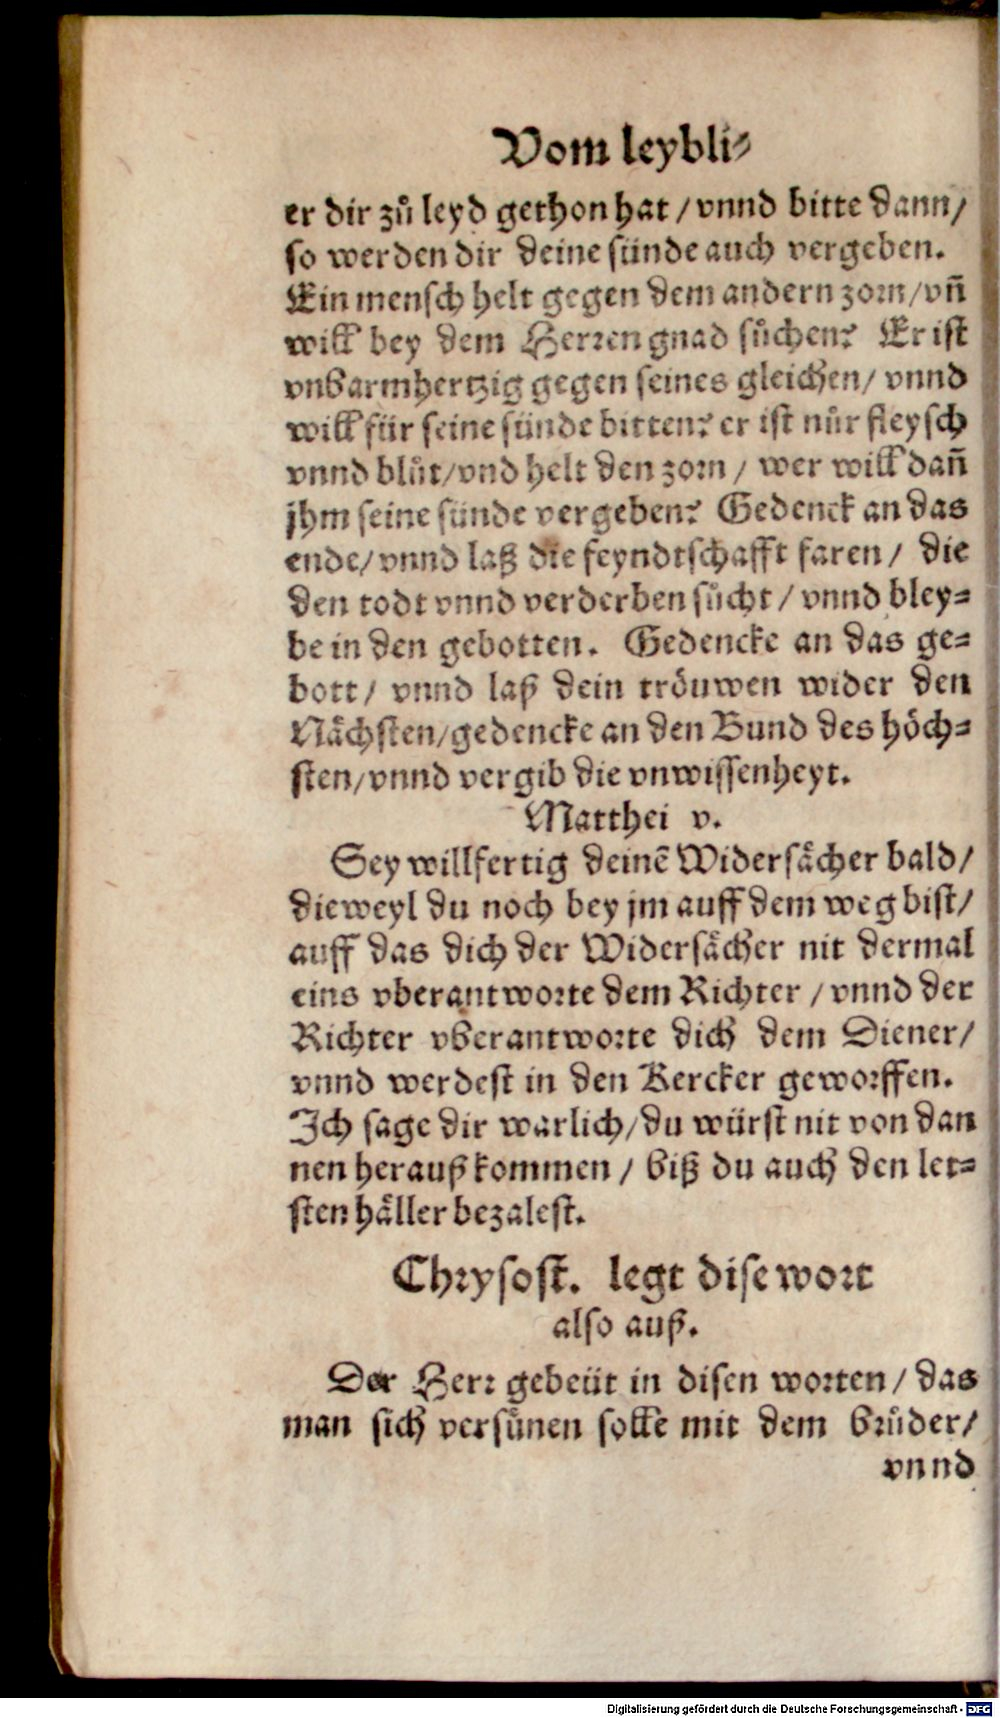 Vom leybli⸗
er dir zů leyd gethon hat / vnnd bitte dann /
so werden dir deine sünde auch vergeben.
Ein mensch helt gegen dem andern zorn / vñ
will bey dem Herren gnad sůchen? Er ist
vnbarmhertzig gegen seines gleichen / vnnd
will für seine sünde bitten? er ist nůr fleysch
vnnd blůt / vnd helt den zorn / wer will dañ
jhm seine sünde vergeben? Gedenck an das
ende / vnnd laß die feyndtschafft faren / die
den todt vnnd verderben sůcht / vnnd bley⸗
be in den gebotten. Gedencke an das ge⸗
bott / vnnd laß dein tröuwen wider den
Nächsten / gedencke an den Bund des höch⸗
sten / vnnd vergib die vnwissenheyt.
Matthei v.
Sey willfertig deinē Widersächer bald /
dieweyl du noch bey jm auff dem weg bist /
auff das dich der Widersächer nit dermal
eins vberantworte dem Richter / vnnd der
Richter vberantworte dich dem Diener /
vnnd werdest in den Kercker geworffen.
Ich sage dir warlich / du würst nit von dan
nen herauß kommen / biß du auch den let⸗
sten häller bezalest.
Chrysost. legt dise wort
also auß.
Der Herr gebeüt in disen worten / das
man sich versünen solle mit dem brůder /
vnnd
Digitalisierung gefördert durch die Deutsche Forschungsgemeinschaft - DFG